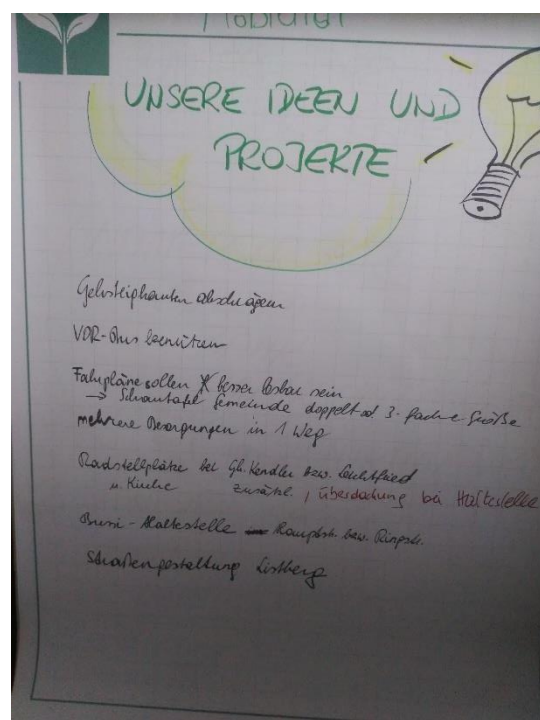 Mobilität
UNSERE IDEEN UND
PROJEKTE
Gehsteigkanten abschrägen
VOR-Bus benützen
Fahrpläne sollen besser lesbar sein
→ Schautafel Gemeinde doppelt od 3-fache Größe
mehrere Besorgungen in 1 Weg
Radstellplätze bei Gh. Kendler bzw. Leichtfried
u. Kirche zusätzl., Überdachung bei Haltestelle
Busi-Haltestelle – Hauptstr. bzw. Ringstr.
Straßengestaltung Listberg